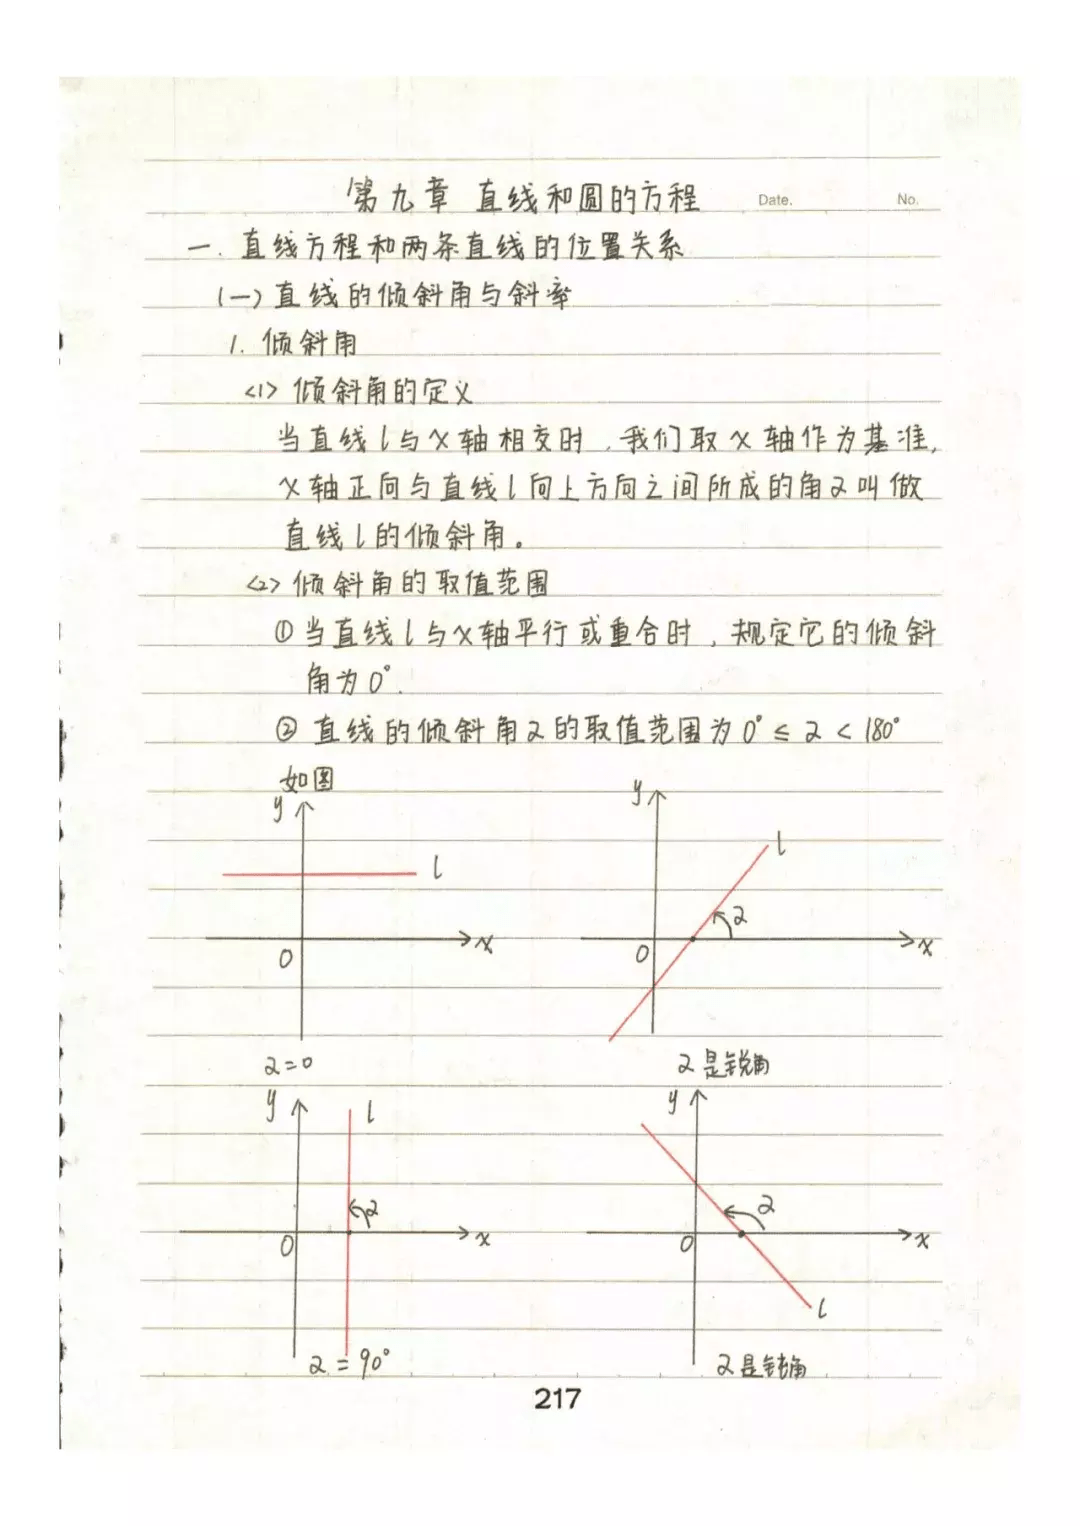 第九章 直线和圆的方程 Date. No.
一. 直线方程和两条直线的位置关系
(一) 直线的倾斜角与斜率
1. 倾斜角
<1> 倾斜角的定义
当直线l与x轴相交时,我们取x轴作为基准,
x轴正向与直线l向上方向之间所成的角α叫做
直线l的倾斜角。
<2> 倾斜角的取值范围
①当直线l与x轴平行或重合时,规定它的倾斜
角为0°.
② 直线的倾斜角α的取值范围为0°≤α<180°
如图
y
l
O
x
α=0
y
l
α
O
x
α是锐角
y
l
α
O
x
α=90°
y
α
O
x
l
α是钝角
217